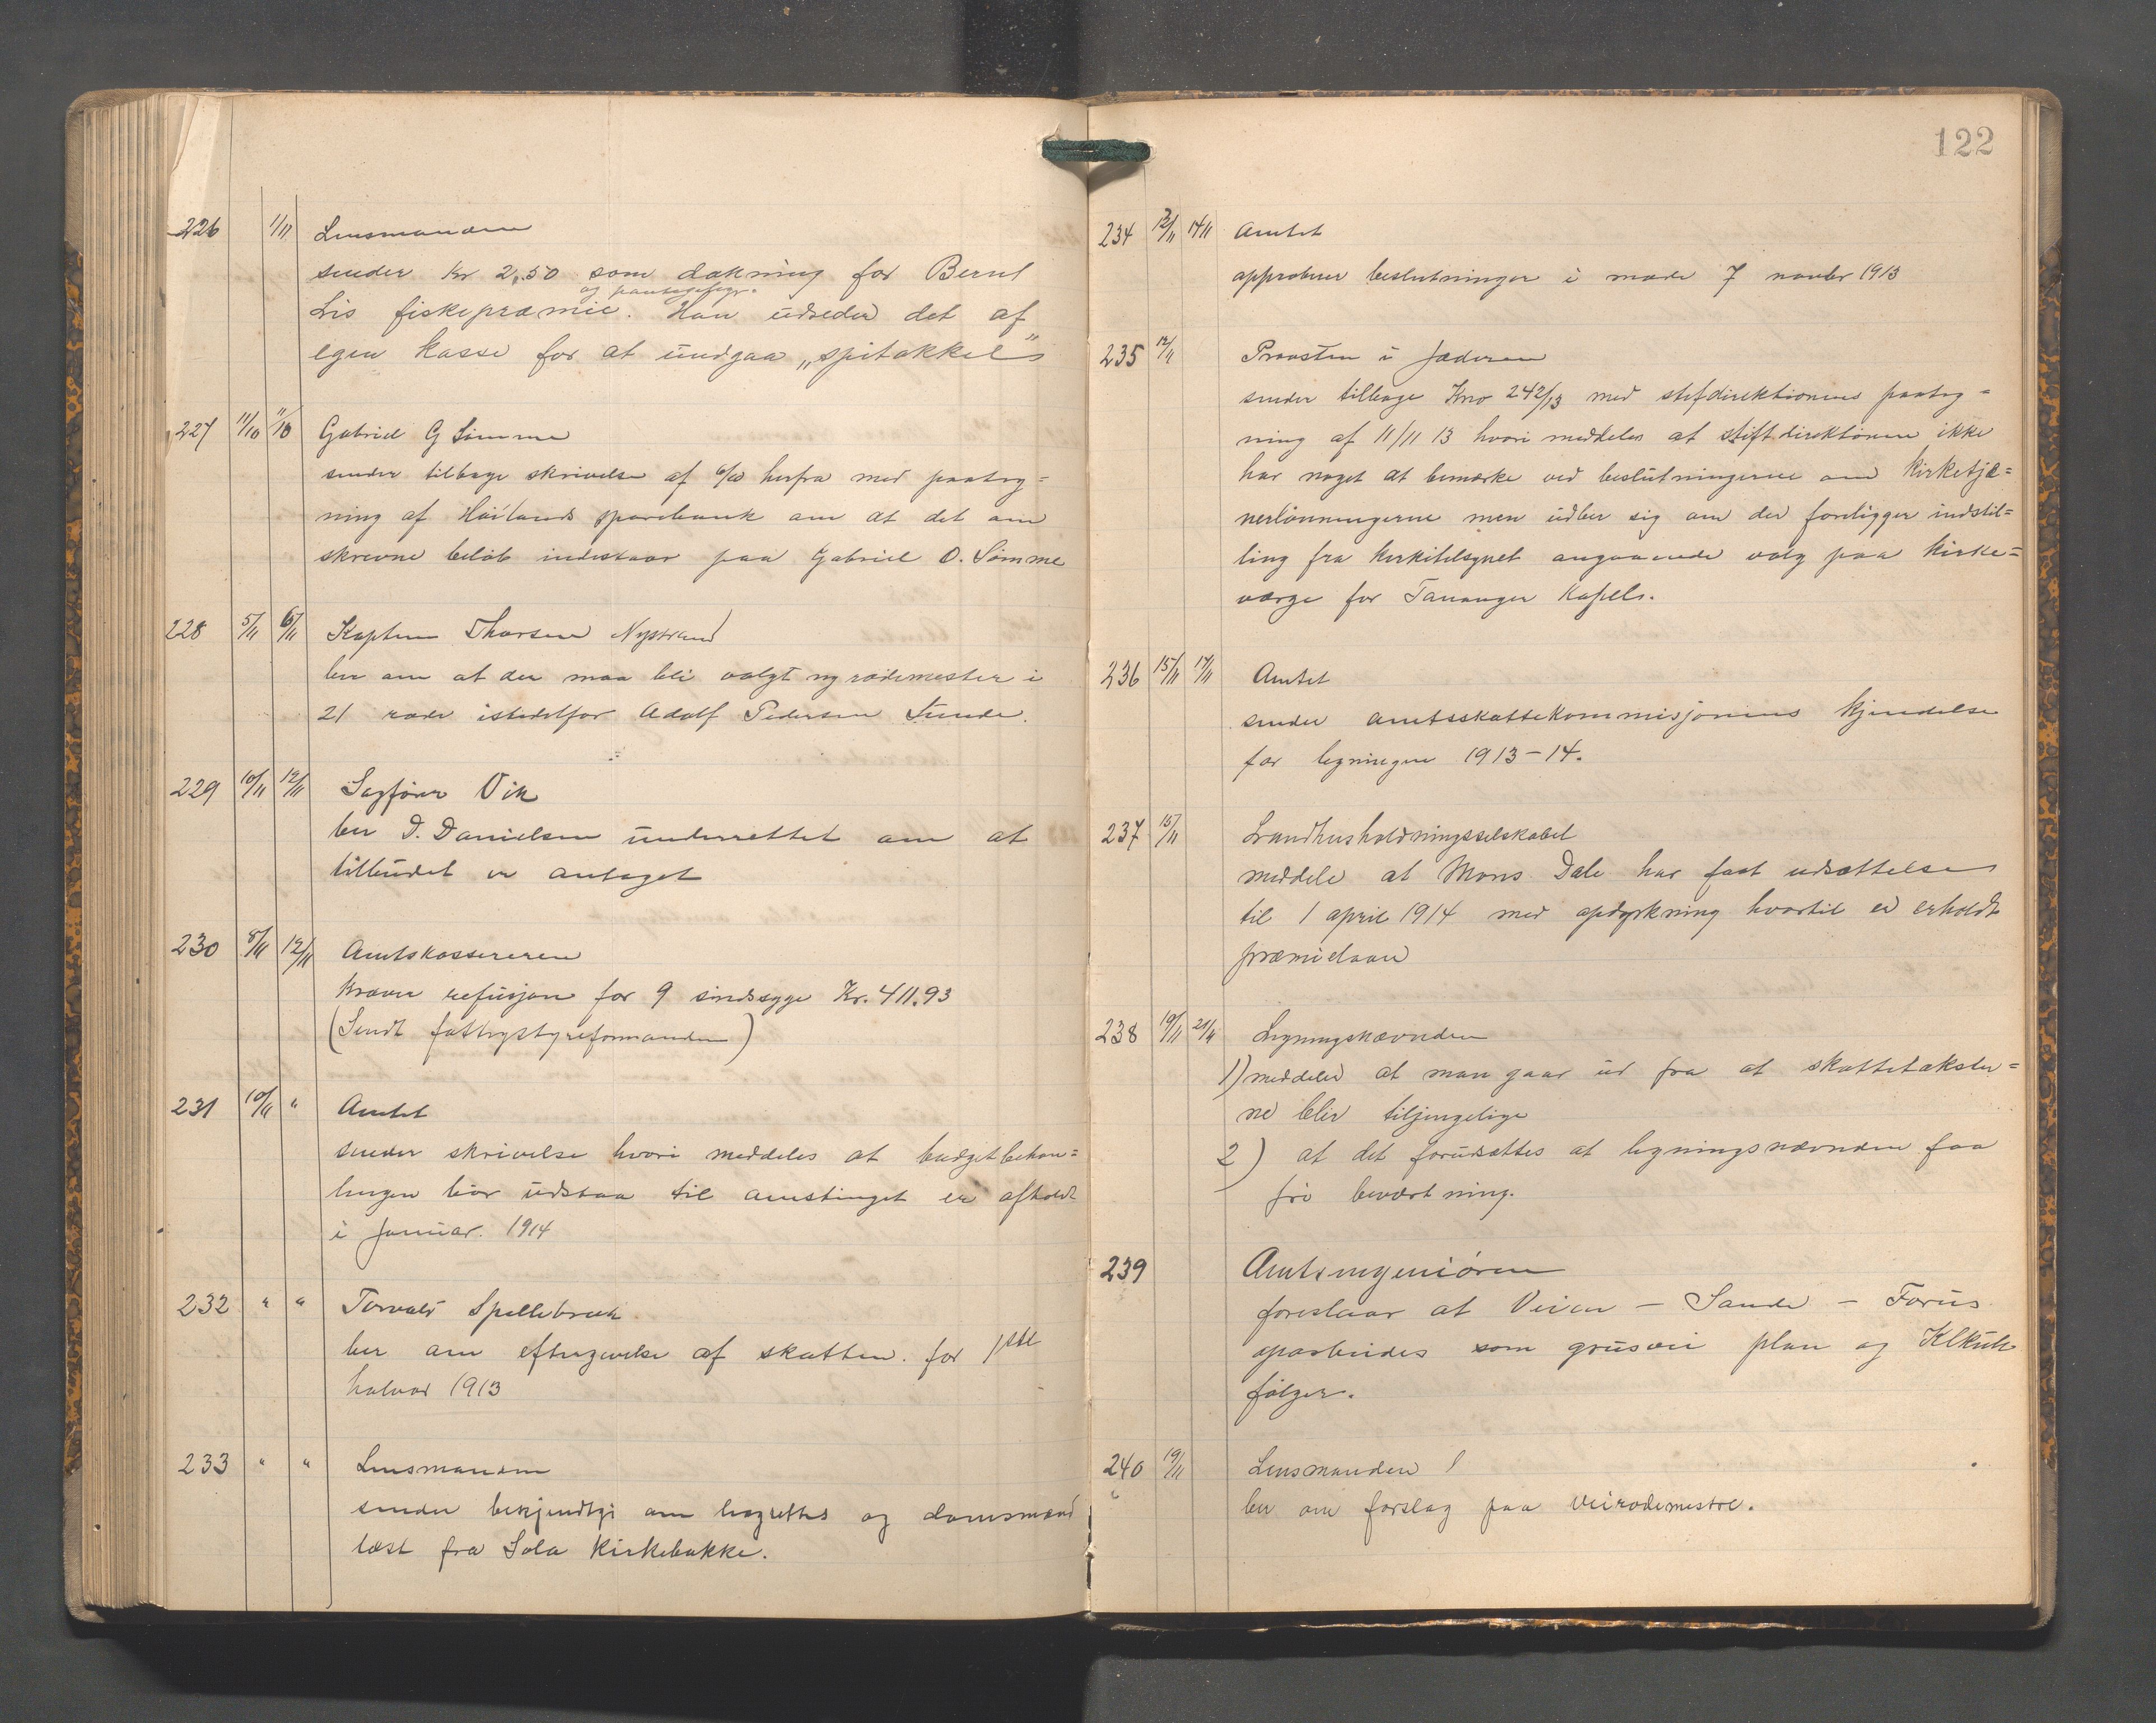 226 1/11 Lensmanden
sender Kr 2,50 som dækning for Bernt
og pantegebyr.
Lis fiskepræmie. Han udreder det af
egen kasse for at undgaa „spetakkel"
227 11/10 11/10 Gabriel G Sømme
sender tilbage skrivelse af 6/10 herfra med paateg=
ning af Høilands sparebank om at det om
skrevne beløb indestaar paa Gabriel O. Sømme
228 5/11 6/11 Kaptein Thorsen Nystrand
ber om at der maa bli valgt ny rodemester i
21 rode istedetfor Adolf Pedersen Sunde.
229 10/11 12/11 Sagfører Vik
ber D. Danielsen underrettet om at
tilbudet er antaget
230 8/11 12/11 Amtskassereren
kræver refusjon for 9 sindssyge Kr. 411.93
(Sendt fattigstyreformanden)
231 10/11 " Amtet
sender skrivelse hvori meddeles at budgetbehan=
lingen bør udstaa til amstinget er afholdt
i Januar. 1914
232 " " Torvald Spellebruk
ber om eftergivelse af skatten. for 1ste
halvaar 1913
233 " " Lensmanden
sender bekjendtgj om lagrettes og domsmænd
læst fra Sola Kirkebakke.
122
234 12/11 14/11 Amtet
approberer beslutninger i møde 7 novbr 1913
235 12/11 Provsten i Jæderen
sender tilbage Kno 242/13 med stifdirektionens paateg=
ning af 11/11 13 hvori meddeles at stiftdirektionen ikke
har noget at bemærke ved beslutningerne om Kirketje=
nerlønningerne men udber sig om der foreligger indstil=
ling fra kirketilsynet angaaende valg paa Kirke=
værge for Tananger Kapel.
236 15/11 17/11 Amtet
sender amtsskattekommisjonens kjendelse
for ligningen 1913-14.
237 15/11 Landhusholdningsselskabet
meddele at Mons Dale har faat udsættelse
til 1 april 1914 med opdyrkning hvortil er erholdt
præmielaan
238 19/11 21/11 Ligningsnævnden
1) meddeler at man gaar ud fra at skattetakster=
ne blir tiljengelige
2) at det forudsættes at ligningsnævnden faa
fri beværtning.
239 Amtsingeniøren
foreslaar at Veien – Sande – Forus
oparbeides som grusvei plan og
følger.
240 19/11 Lensmanden
ber om forslag paa veirodemestre.